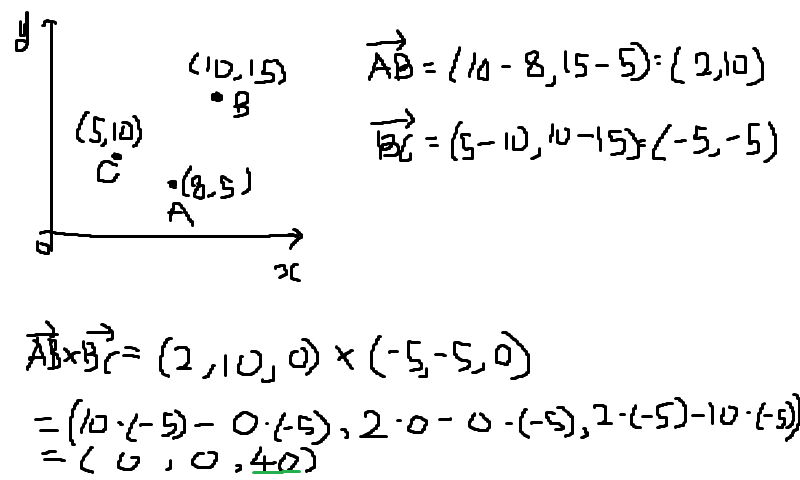 y
(10,15)
B
(5,10)
C
(8,5)
A
0
x
AB = (10-8,15-5)=(2,10)
BC = (5-10,10-15)=(-5,-5)
AB×BC = (2,10,0)×(-5,-5,0)
=(10·(-5)-0·(-5),2·0-0·(-5),2·(-5)-10·(-5))
=(0,0,40)